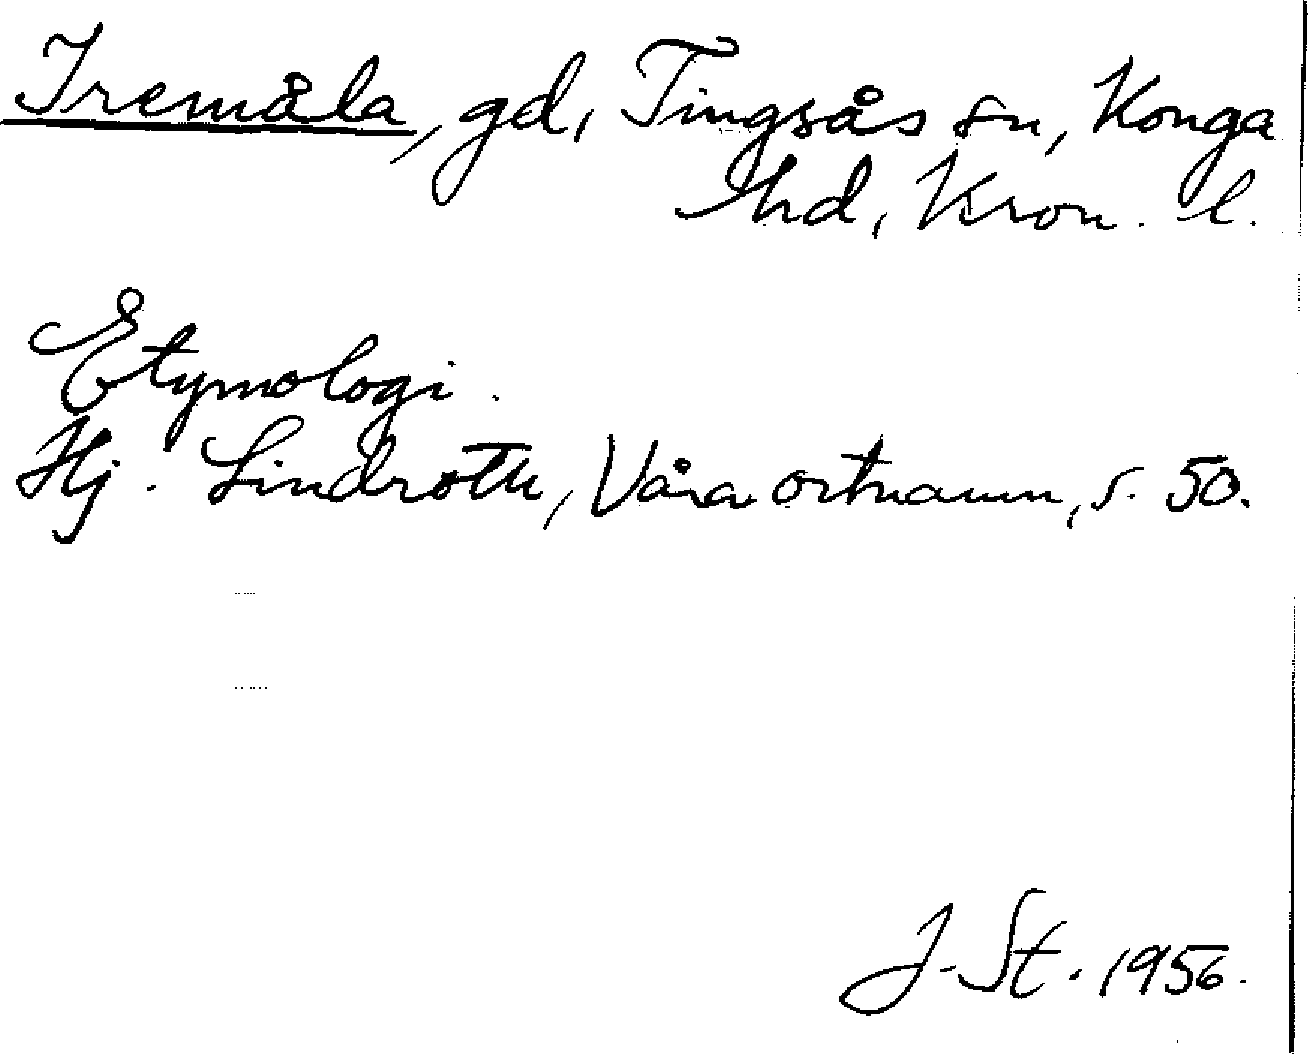 Iremåla, gd, Tingsås sn, Konga
hd, Kron. l.
Etymologi.
Hj. Lindroth, Våra ortnamn, s. 50.
J. St. 1956.